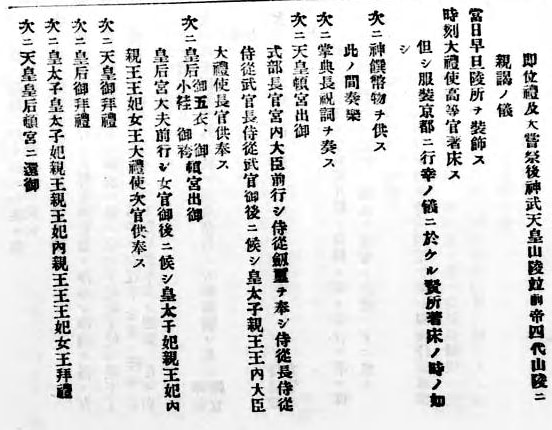 即位禮及大嘗祭後神武天皇山陵竝前帝四代山陵ニ
親謁ノ儀
當日早旦陵所ヲ裝飾ス
時刻大禮使高等官著床ス
但シ服裝京都ニ行幸ノ儀ニ於ケル賢所著床ノ時ノ如
シ
次ニ神饌幣物ヲ供ス
此ノ間奏樂
次ニ掌典長祝詞ヲ奏ス
次ニ天皇頓宮出御
式部長官宮內大臣前行シ侍從劒璽ヲ奉シ侍從長侍從
侍從武官長侍從武官御後ニ候シ皇太子親王王內大臣
大禮使長官供奉ス
次ニ皇后御五衣、御小袿、御袴頓宮出御
皇后宮大夫前行シ女官御後ニ候シ皇太子妃親王妃內
親王王妃女王大禮使次官供奉ス
次ニ天皇御拜禮
次ニ皇后御拜禮
次ニ皇太子皇太子妃親王親王妃內親王王王妃女王拜禮
次ニ天皇皇后頓宮ニ還御